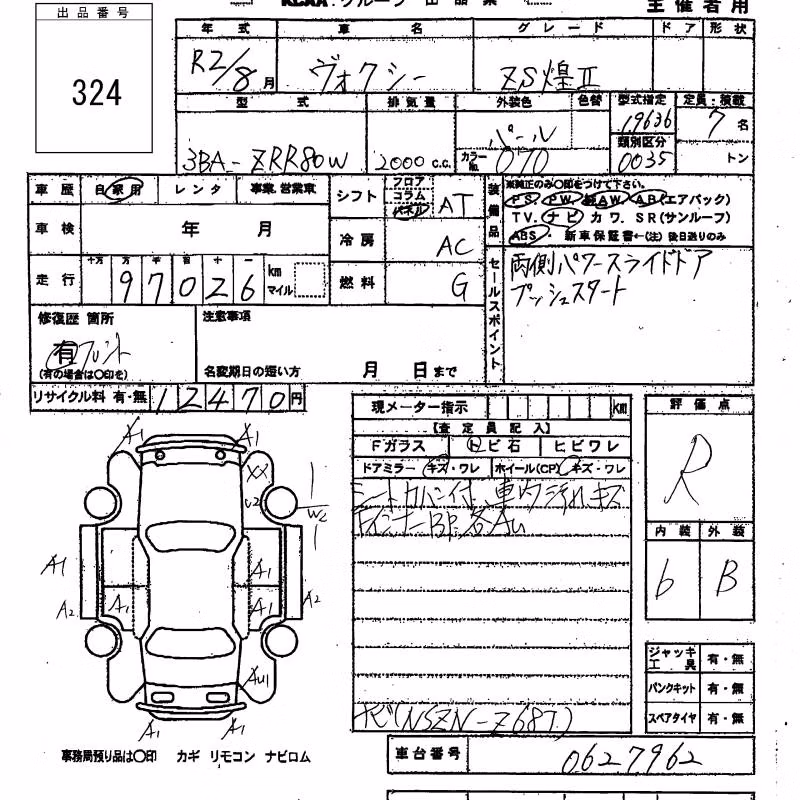 出品番号
324
KCAA・グループ 出品票
主催者用
年式 車名 グレード ドア 形状
R2/8月 ヴォクシー ZS煌Ⅱ
型式 排気量 外装色 色替 型式指定 定員・積載
3BA-ZRR80W 2000 C.C. パール 19636 7名
カラーNo. 070 類別区分 0035 トン
車歴 自家用 レンタ 事業・営業車
シフト フロア コラム パネル AT
装備品 ※純正のみ○印をつけて下さい。
PS. PW. AW. AB(エアバック)
TV. ナビ カワ. SR(サンルーフ)
ABS・ 新車保証書←(注)後日送りのみ
車検 年 月
冷房 AC
走行 十万 万 千 百 十 一 km マイル
97026
燃料 G
セールスポイント
両側パワースライドドア
プッシュスタート
修復歴 箇所
有 フロント
(有の場合は○印を)
注意事項
名変期日の短い方 月 日まで
リサイクル料 有・無 12470円
現メーター指示 km
【査定員記入】
Fガラス トビ石 ヒビワレ
ドアミラー キズ・ワレ ホイール(CP) キズ・ワレ
シートカバー付 車内汚れキズ
Fインナー BP. 各AU
ナビ(NSZN-Z68T)
評価点
R
内装 外装
6 B
ジャッキ 工具 有・無
パンクキット 有・無
スペアタイヤ 有・無
A1 A1
XX
U2
W2
A1 A1
A2 A1 A1 A2
AU1
A1 A1
事務局預り品は○印 カギ リモコン ナビロム
車台番号 0627962